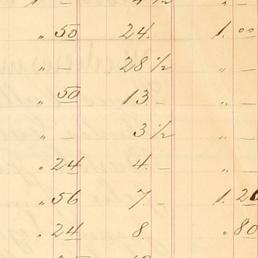 " 50 24. 1. 00
" — 28 1/2 " —
" 50 13 — " —
" — 3 1/2 " —
" 24 4. — " —
" 56 7 — 1. 20
" 24 8. " 80